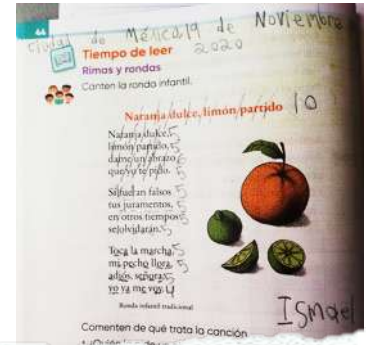 44
Ciudad de México 19 de Noviembre
2020
Tiempo de leer
Rimas y rondas
Canten la ronda infantil.
Naranja dulce, limón partido 10
Naranja dulce, 5
limón partido, 5
dame un abrazo 6
que yo te pido. 5
Si fueran falsos 5
tus juramentos, 5
en otros tiempos 5
se olvidarán. 5
Toca la marcha, 5
mi pecho llora, 5
adiós, señora, 5
yo ya me voy. 4
Ronda infantil tradicional
Ismael
Comenten de qué trata la canción